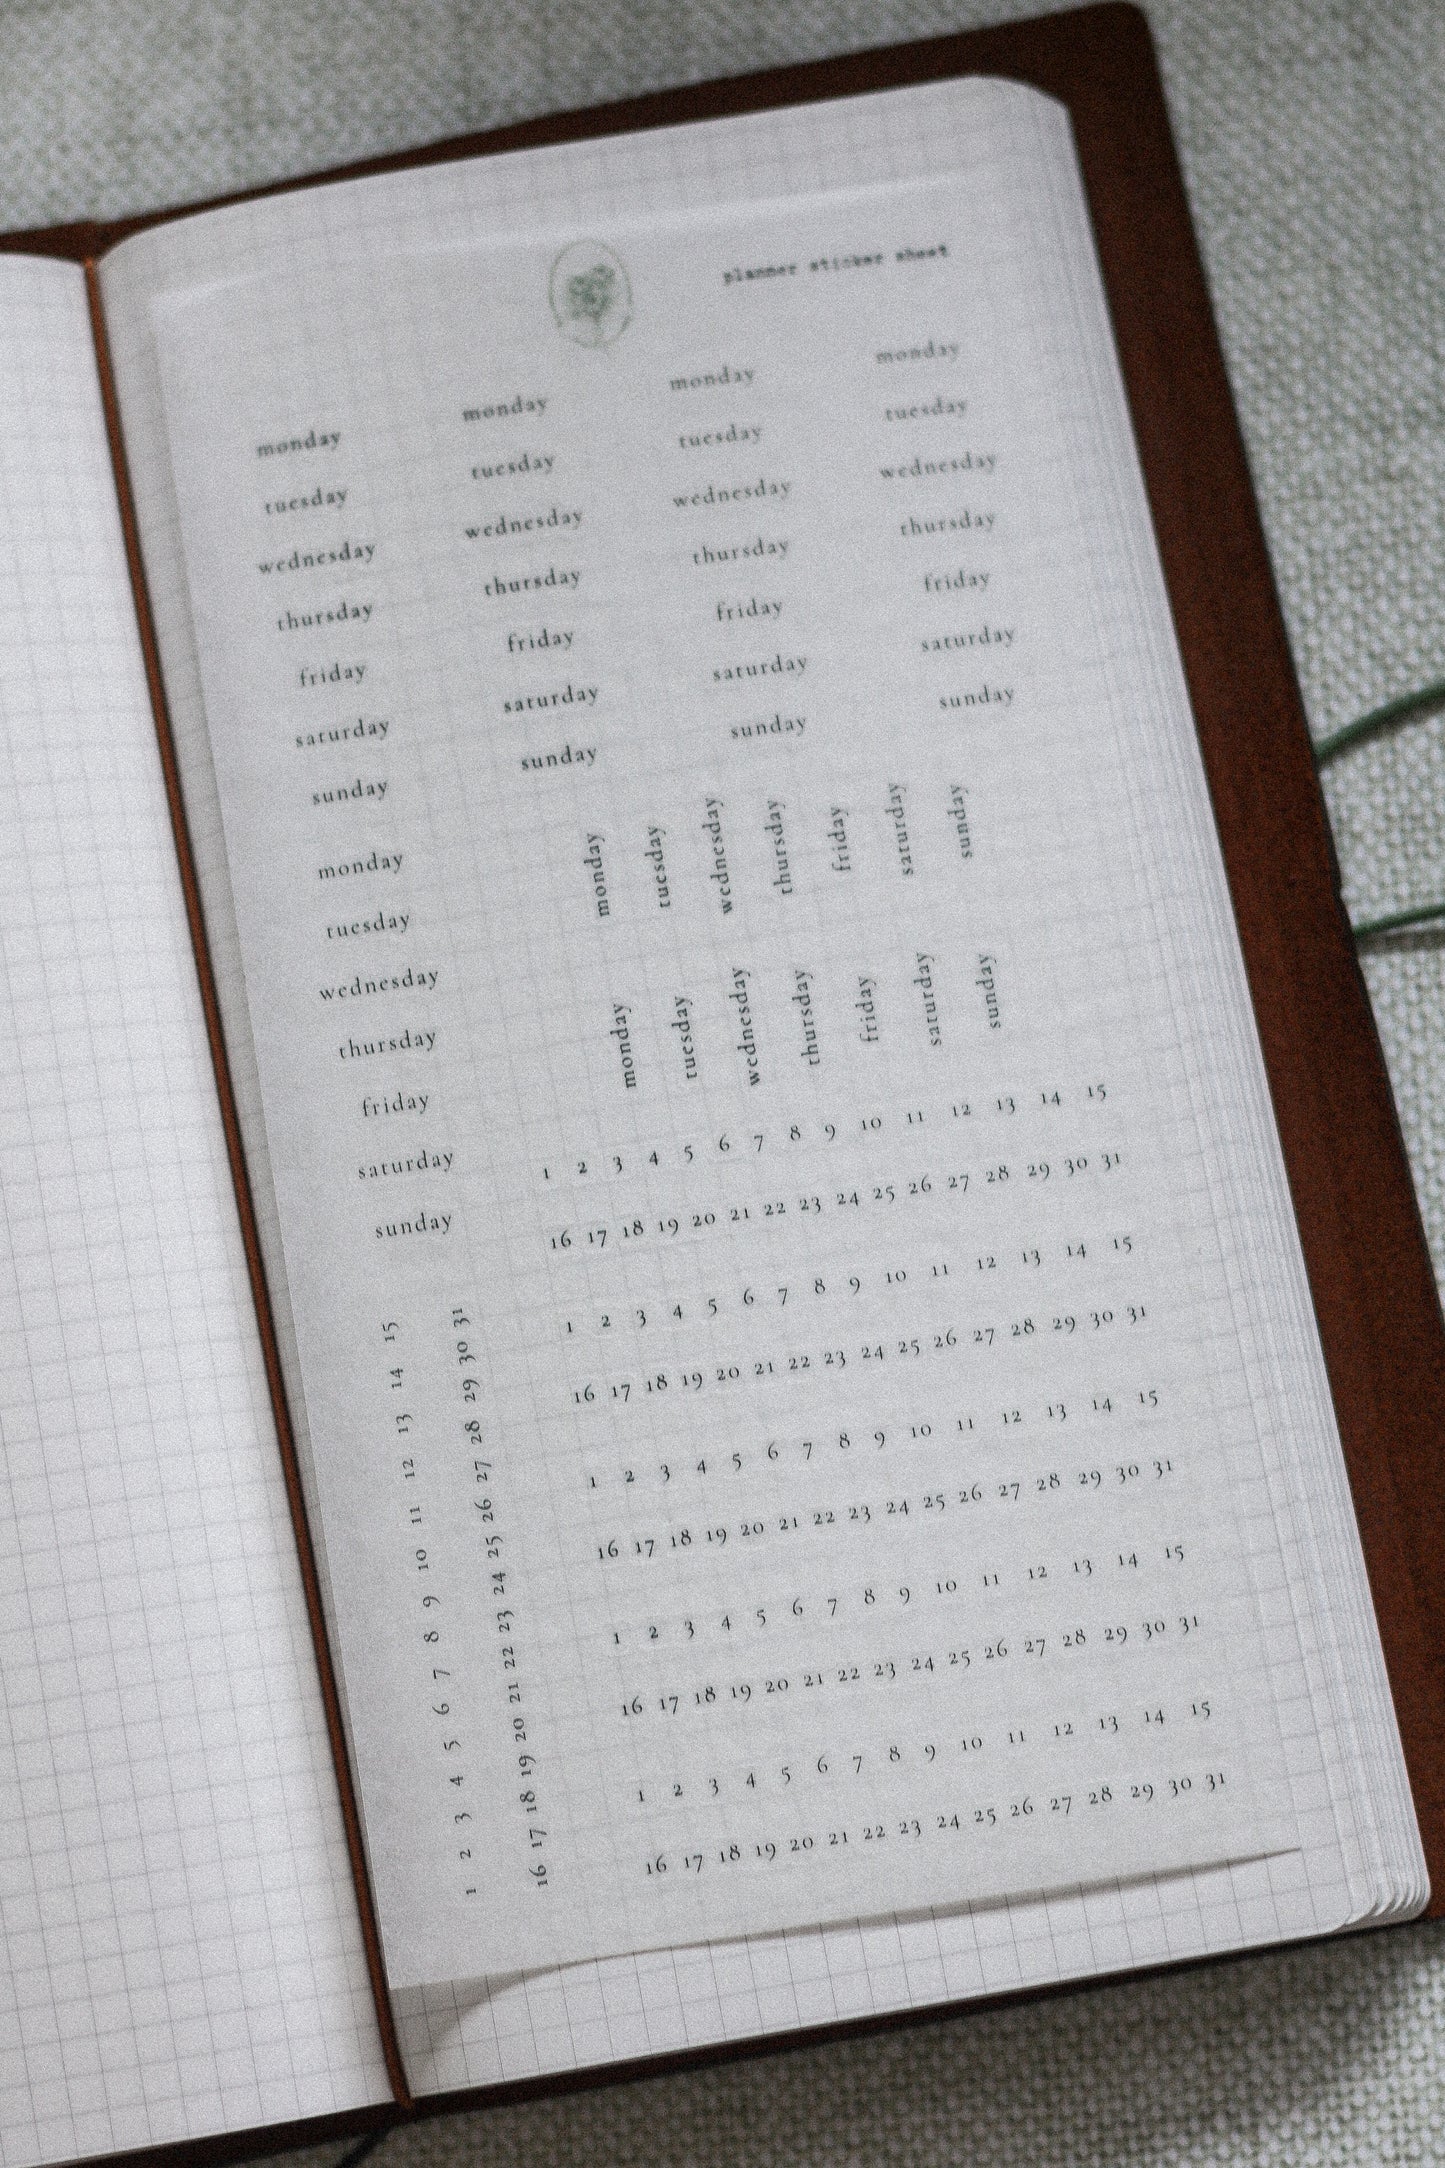 planner sticker sheet
monday monday monday monday
tuesday tuesday tuesday tuesday
wednesday wednesday wednesday wednesday
thursday thursday thursday thursday
friday friday friday friday
saturday saturday saturday saturday
sunday sunday sunday sunday
monday
tuesday
wednesday
thursday
friday
saturday
sunday
monday
tuesday
wednesday
thursday
friday
saturday
sunday
monday
tuesday
wednesday
thursday
friday
saturday
sunday
1 2 3 4 5 6 7 8 9 10 11 12 13 14 15
16 17 18 19 20 21 22 23 24 25 26 27 28 29 30 31
1 2 3 4 5 6 7 8 9 10 11 12 13 14 15
16 17 18 19 20 21 22 23 24 25 26 27 28 29 30 31
1 2 3 4 5 6 7 8 9 10 11 12 13 14 15
16 17 18 19 20 21 22 23 24 25 26 27 28 29 30 31
1 2 3 4 5 6 7 8 9 10 11 12 13 14 15
16 17 18 19 20 21 22 23 24 25 26 27 28 29 30 31
1 2 3 4 5 6 7 8 9 10 11 12 13 14 15
16 17 18 19 20 21 22 23 24 25 26 27 28 29 30 31
1 2 3 4 5 6 7 8 9 10 11 12 13 14 15
16 17 18 19 20 21 22 23 24 25 26 27 28 29 30 31